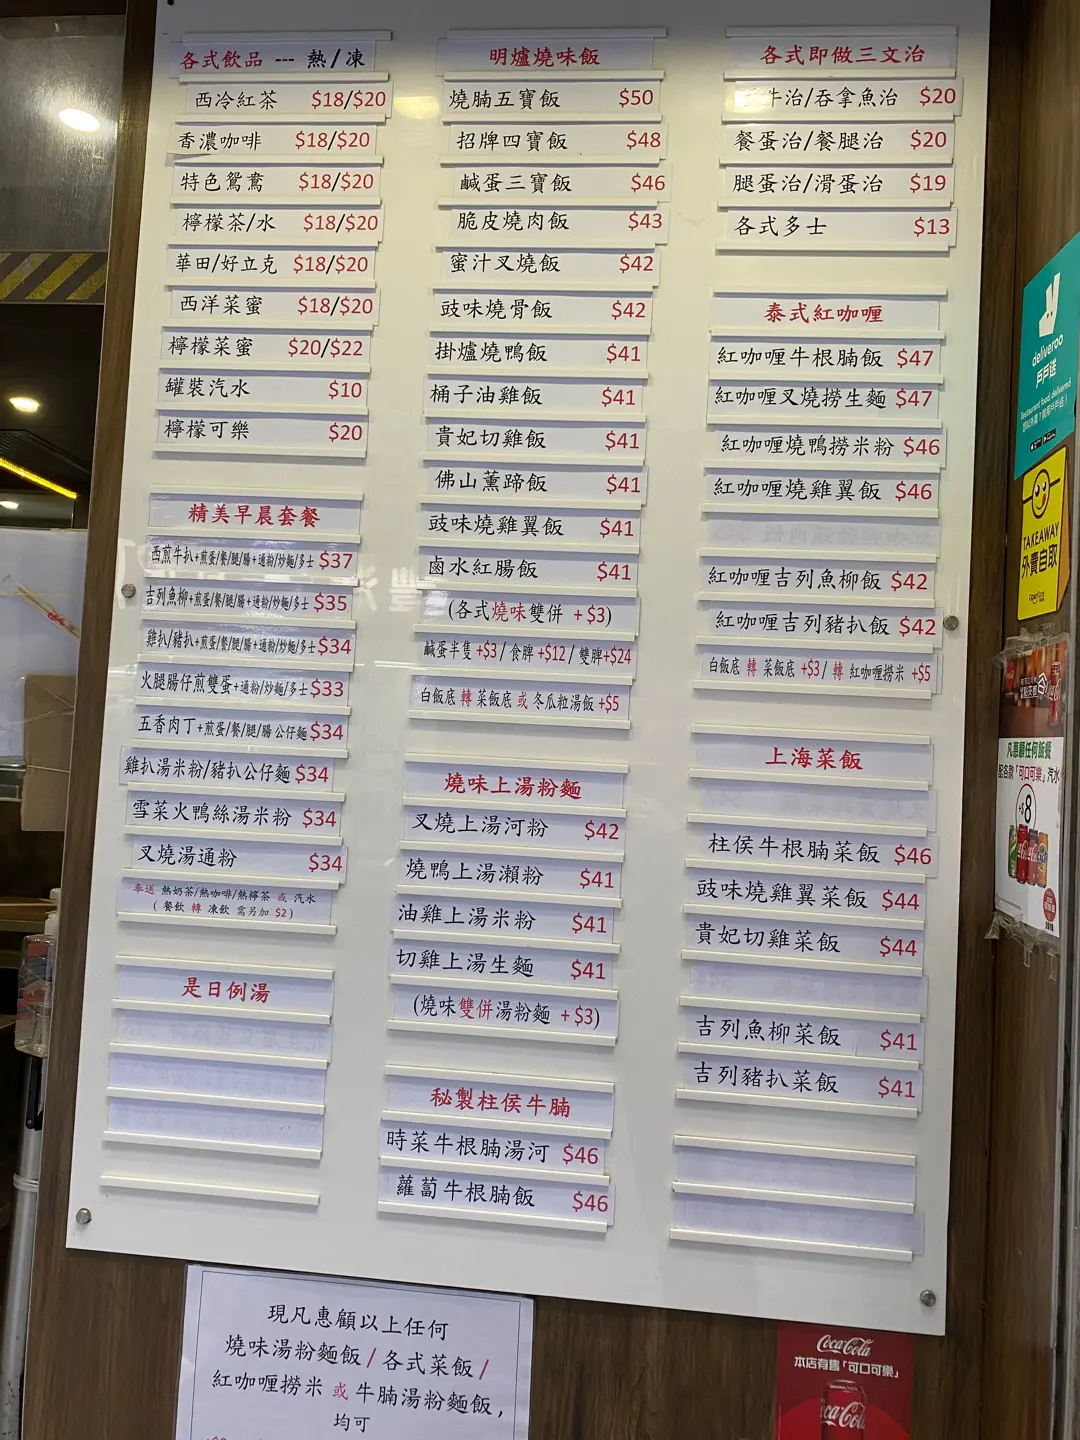 各式飲品 --- 熱/凍
西冷紅茶 $18/$20
香濃咖啡 $18/$20
特色鴛鴦 $18/$20
檸檬茶/水 $18/$20
華田/好立克 $18/$20
西洋菜蜜 $18/$20
檸檬菜蜜 $20/$22
罐裝汽水 $10
檸檬可樂 $20
精美早晨套餐
西煎牛扒+煎蛋/餐/腿/腸+通粉/炒麵/多士 $37
吉列魚柳+煎蛋/餐/腿/腸+通粉/炒麵/多士 $35
雞扒/豬扒+煎蛋/餐/腿/腸+通粉/炒麵/多士 $34
火腿腸仔煎雙蛋+通粉/炒麵/多士 $33
五香肉丁+煎蛋/餐/腿/腸 公仔麵 $34
雞扒湯米粉/豬扒公仔麵 $34
雪菜火鴨絲湯米粉 $34
叉燒湯通粉 $34
奉送 熱奶茶/熱咖啡/熱檸茶 或 汽水
( 餐飲 轉 凍飲 需另加 $2 )
是日例湯
明爐燒味飯
燒腩五寶飯 $50
招牌四寶飯 $48
鹹蛋三寶飯 $46
脆皮燒肉飯 $43
蜜汁叉燒飯 $42
豉味燒骨飯 $42
掛爐燒鴨飯 $41
桶子油雞飯 $41
貴妃切雞飯 $41
佛山薰蹄飯 $41
豉味燒雞翼飯 $41
鹵水紅腸飯 $41
(各式燒味雙併 +$3)
鹹蛋半隻+$3/ 食髀+$12/ 雙髀+$24
白飯底 轉 菜飯底 或 冬瓜粒湯飯+$5
燒味上湯粉麵
叉燒上湯河粉 $42
燒鴨上湯瀨粉 $41
油雞上湯米粉 $41
切雞上湯生麵 $41
(燒味雙併湯粉麵 +$3)
秘製柱侯牛腩
時菜牛根腩湯河 $46
蘿蔔牛根腩飯 $46
各式即做三文治
牛治/吞拿魚治 $20
餐蛋治/餐腿治 $20
腿蛋治/滑蛋治 $19
各式多士 $13
泰式紅咖喱
紅咖喱牛根腩飯 $47
紅咖喱叉燒撈生麵 $47
紅咖喱燒鴨撈米粉 $46
紅咖喱燒雞翼飯 $46
紅咖喱吉列魚柳飯 $42
紅咖喱吉列豬扒飯 $42
白飯底 轉 菜飯底 +$3/ 轉 紅咖喱撈米 +$5
上海菜飯
柱侯牛根腩菜飯 $46
豉味燒雞翼菜飯 $44
貴妃切雞菜飯 $44
吉列魚柳菜飯 $41
吉列豬扒菜飯 $41
現凡惠顧以上任何
燒味湯粉麵飯/各式菜飯/
紅咖喱撈米 或 牛腩湯粉麵飯,
均可
deliveroo
戶戶送
Restaurant food, delivered
TAKEAWAY
外賣自取
凡惠顧任何飯餐
配各款「可口可樂」汽水
+$8
Coca-Cola
本店有售「可口可樂」
Coca-Cola